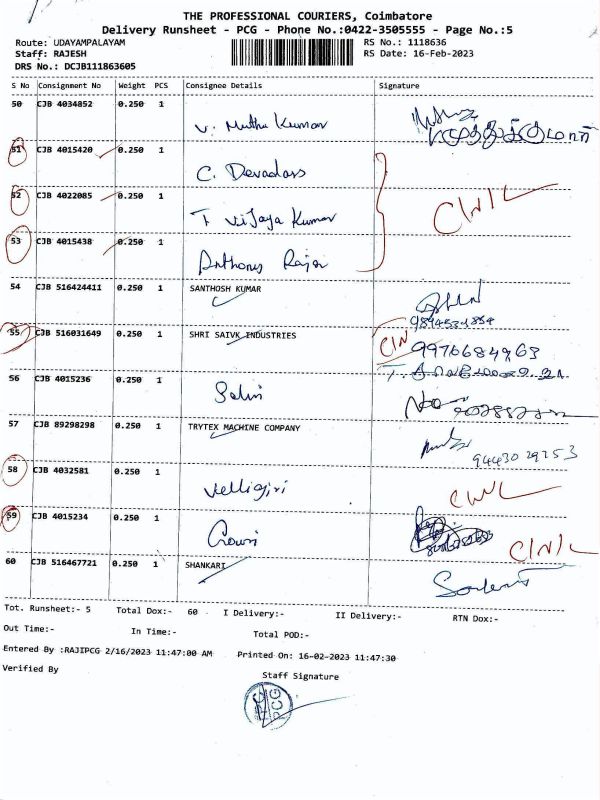 THE PROFESSIONAL COURIERS, Coimbatore
Delivery Runsheet - PCG - Phone No.:0422-3505555 - Page No.:5
Route: UDAYAMPALAYAM RS No.: 1118636
Staff: RAJESH RS Date: 16-Feb-2023
DRS No.: DCJB111863605
S No Consignment No Weight PCS Consignee Details Signature
50 CJB 4034852 0.250 1
V. Muthu Kumar
51 CJB 4015420 0.250 1
C. Devadass
52 CJB 4022085 0.250 1
T. Vijaya Kumar
53 CJB 4015438 0.250 1
54 CJB 516424411 0.250 1 SANTHOSH KUMAR
55 CJB 516031649 0.250 1 SHRI SAIVK INDUSTRIES
9976684963
56 CJB 4015236 0.250 1
Selvi
57 CJB 89298298 0.250 1 TRYTEX MACHINE COMPANY
58 CJB 4032581 0.250 1
Velligiri
59 CJB 4015234 0.250 1
Gowri
60 CJB 516467721 0.250 1 SHANKARI
Tot. Runsheet:- 5 Total Dox:- 60 I Delivery:- II Delivery:- RTN Dox:-
Out Time:- In Time:- Total POD:-
Entered By :RAJIPCG 2/16/2023 11:47:00 AM Printed On: 16-02-2023 11:47:30
Verified By Staff Signature
PCG